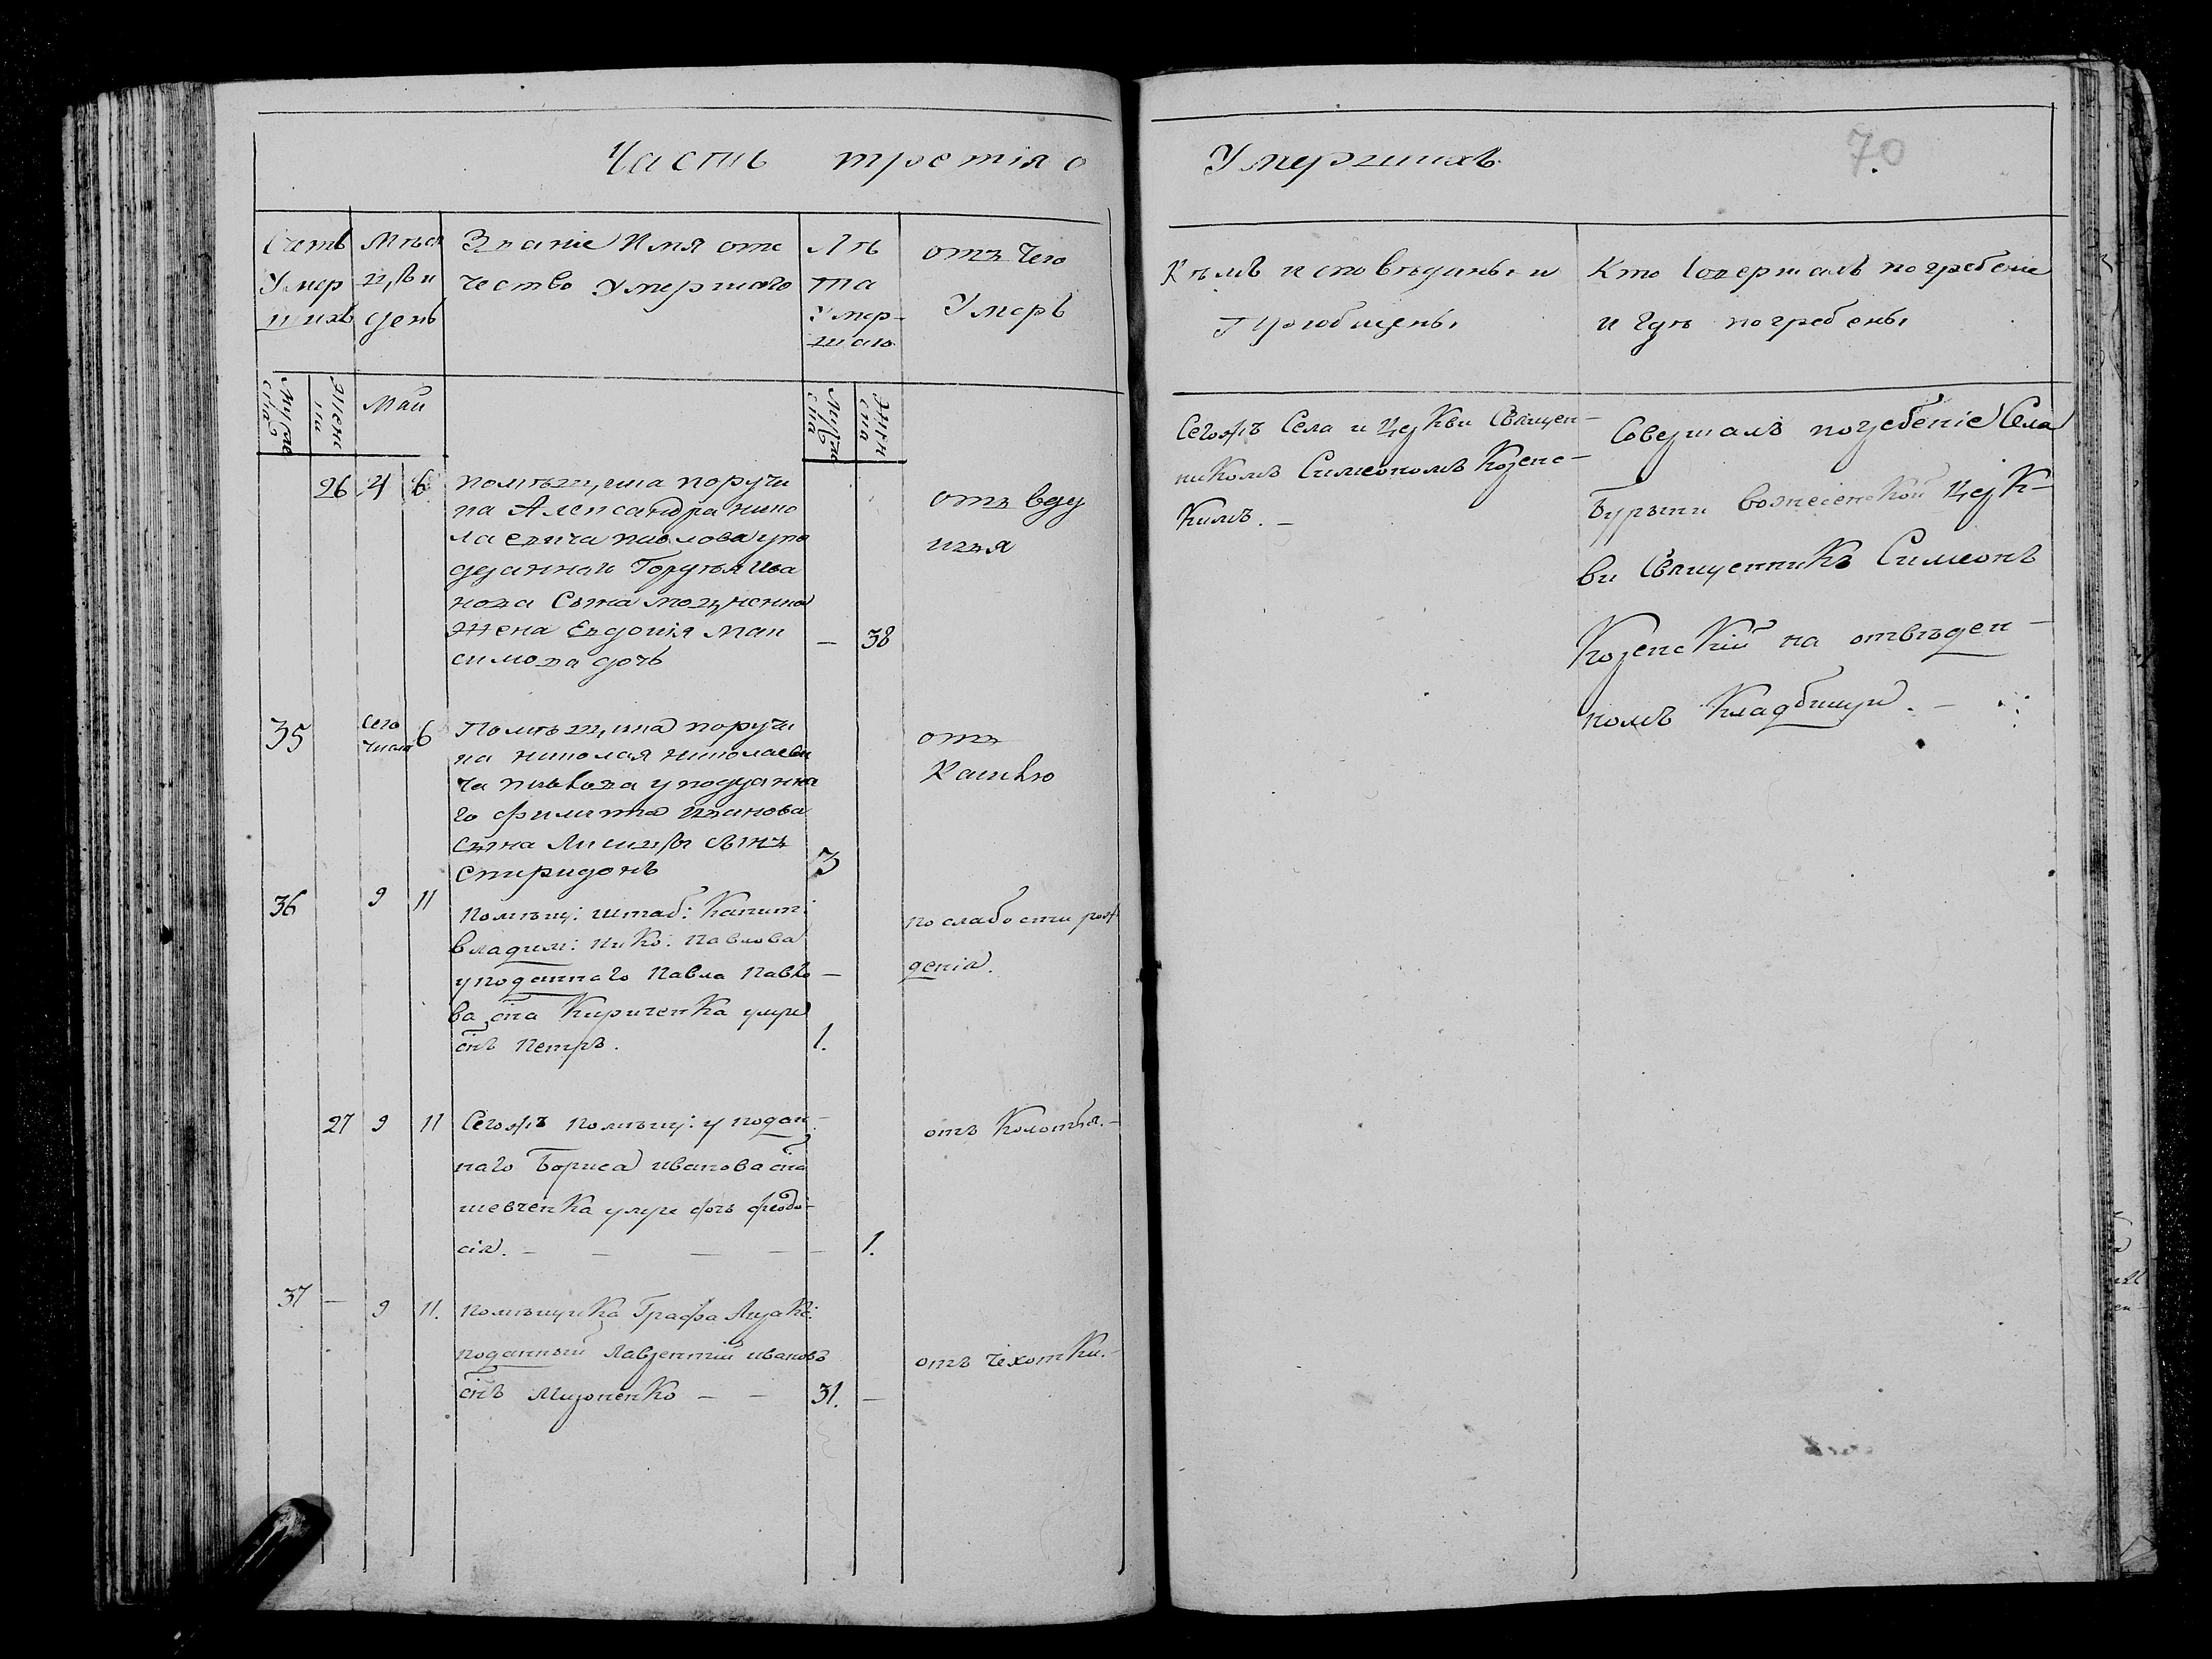 Часть третія о Умершихъ
70
Счетъ Умер шихъ
Мѣся ц,ъ и день
Званіе Имя оте
чество умершаго
Лѣ та Умер- шаго
отъ чего
Умеръ
Кѣмъ исповѣданы и
Пріобщены
Кто Совершалъ погребеніе
и гдѣ погребены
Муже ска
Жен ска
Май
Муже ска
Женск
26 4 6
помѣщ,ика поручи
ка Александра нико
лаевича павлова упо
дданнаго Гордѣя Ива
нова Сына
жена Евдокія Мак
симова дочь
— 38
отъ
Сегожъ Села и Церкви Священ-
никомъ Симеономъ Козенс-
кимъ. —
Совершалъ погребеніе Села
Бурыни вознесенской Церк-
ви Священникъ Симеонъ
Козенскій на отвѣден-
номъ Кладбищи. —
35 сего числа 6
Помѣщ,ика поручи
ка николая николаеви
ча павлова уподданна
го филипа иванова
сына сынъ
спиридонъ
3
отъ
Кашлю
36 9 11
помѣщ: штаб: Капит:
владим: нико: павлова
уподаннаго Павла Павло
ва сна Кириченка умре
снъ Петръ.
1.
по слабости рож
денія.
27 9 11
Сегожъ помѣщ: у подан-
наго Бориса иванова сна
шевченка умре дочь феодо-
сія. — — — — —
1.
отъ Колотья.-
37 — 9 11.
помѣщика Графа
поданный Лаврентій ивановъ
снъ Мироненко — —
31. —
отъ чехотки.-